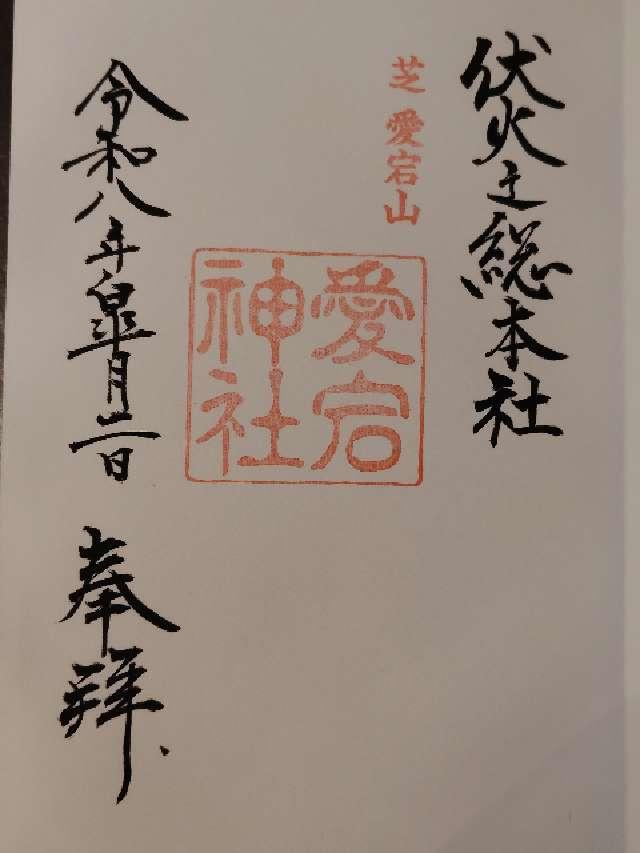 伏火之総本社
芝 愛宕山
愛宕神社
令和八年皐月二日 奉拝